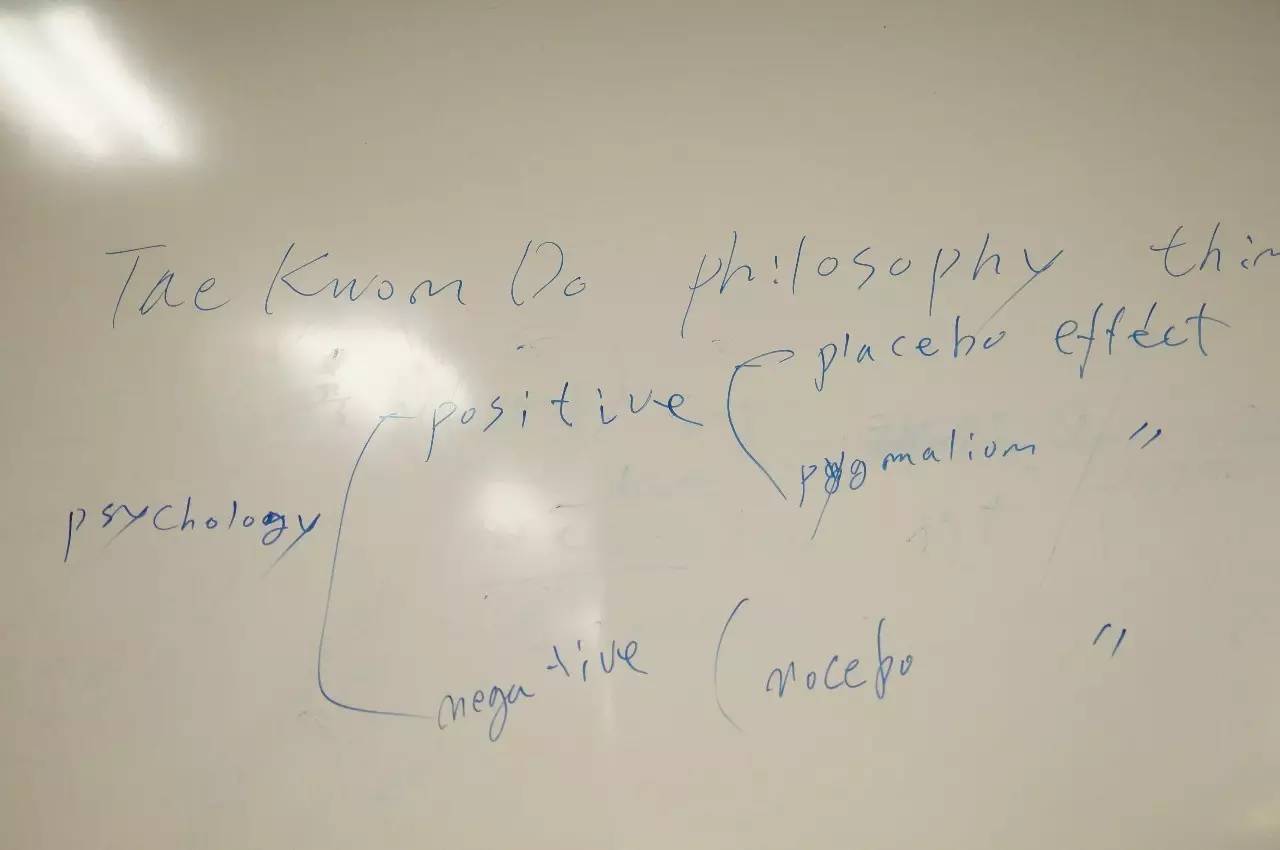 Tae Kwon Do philosophy thin
placebo effect
positive
pygmalion "
psychology
negative ( nocebo "